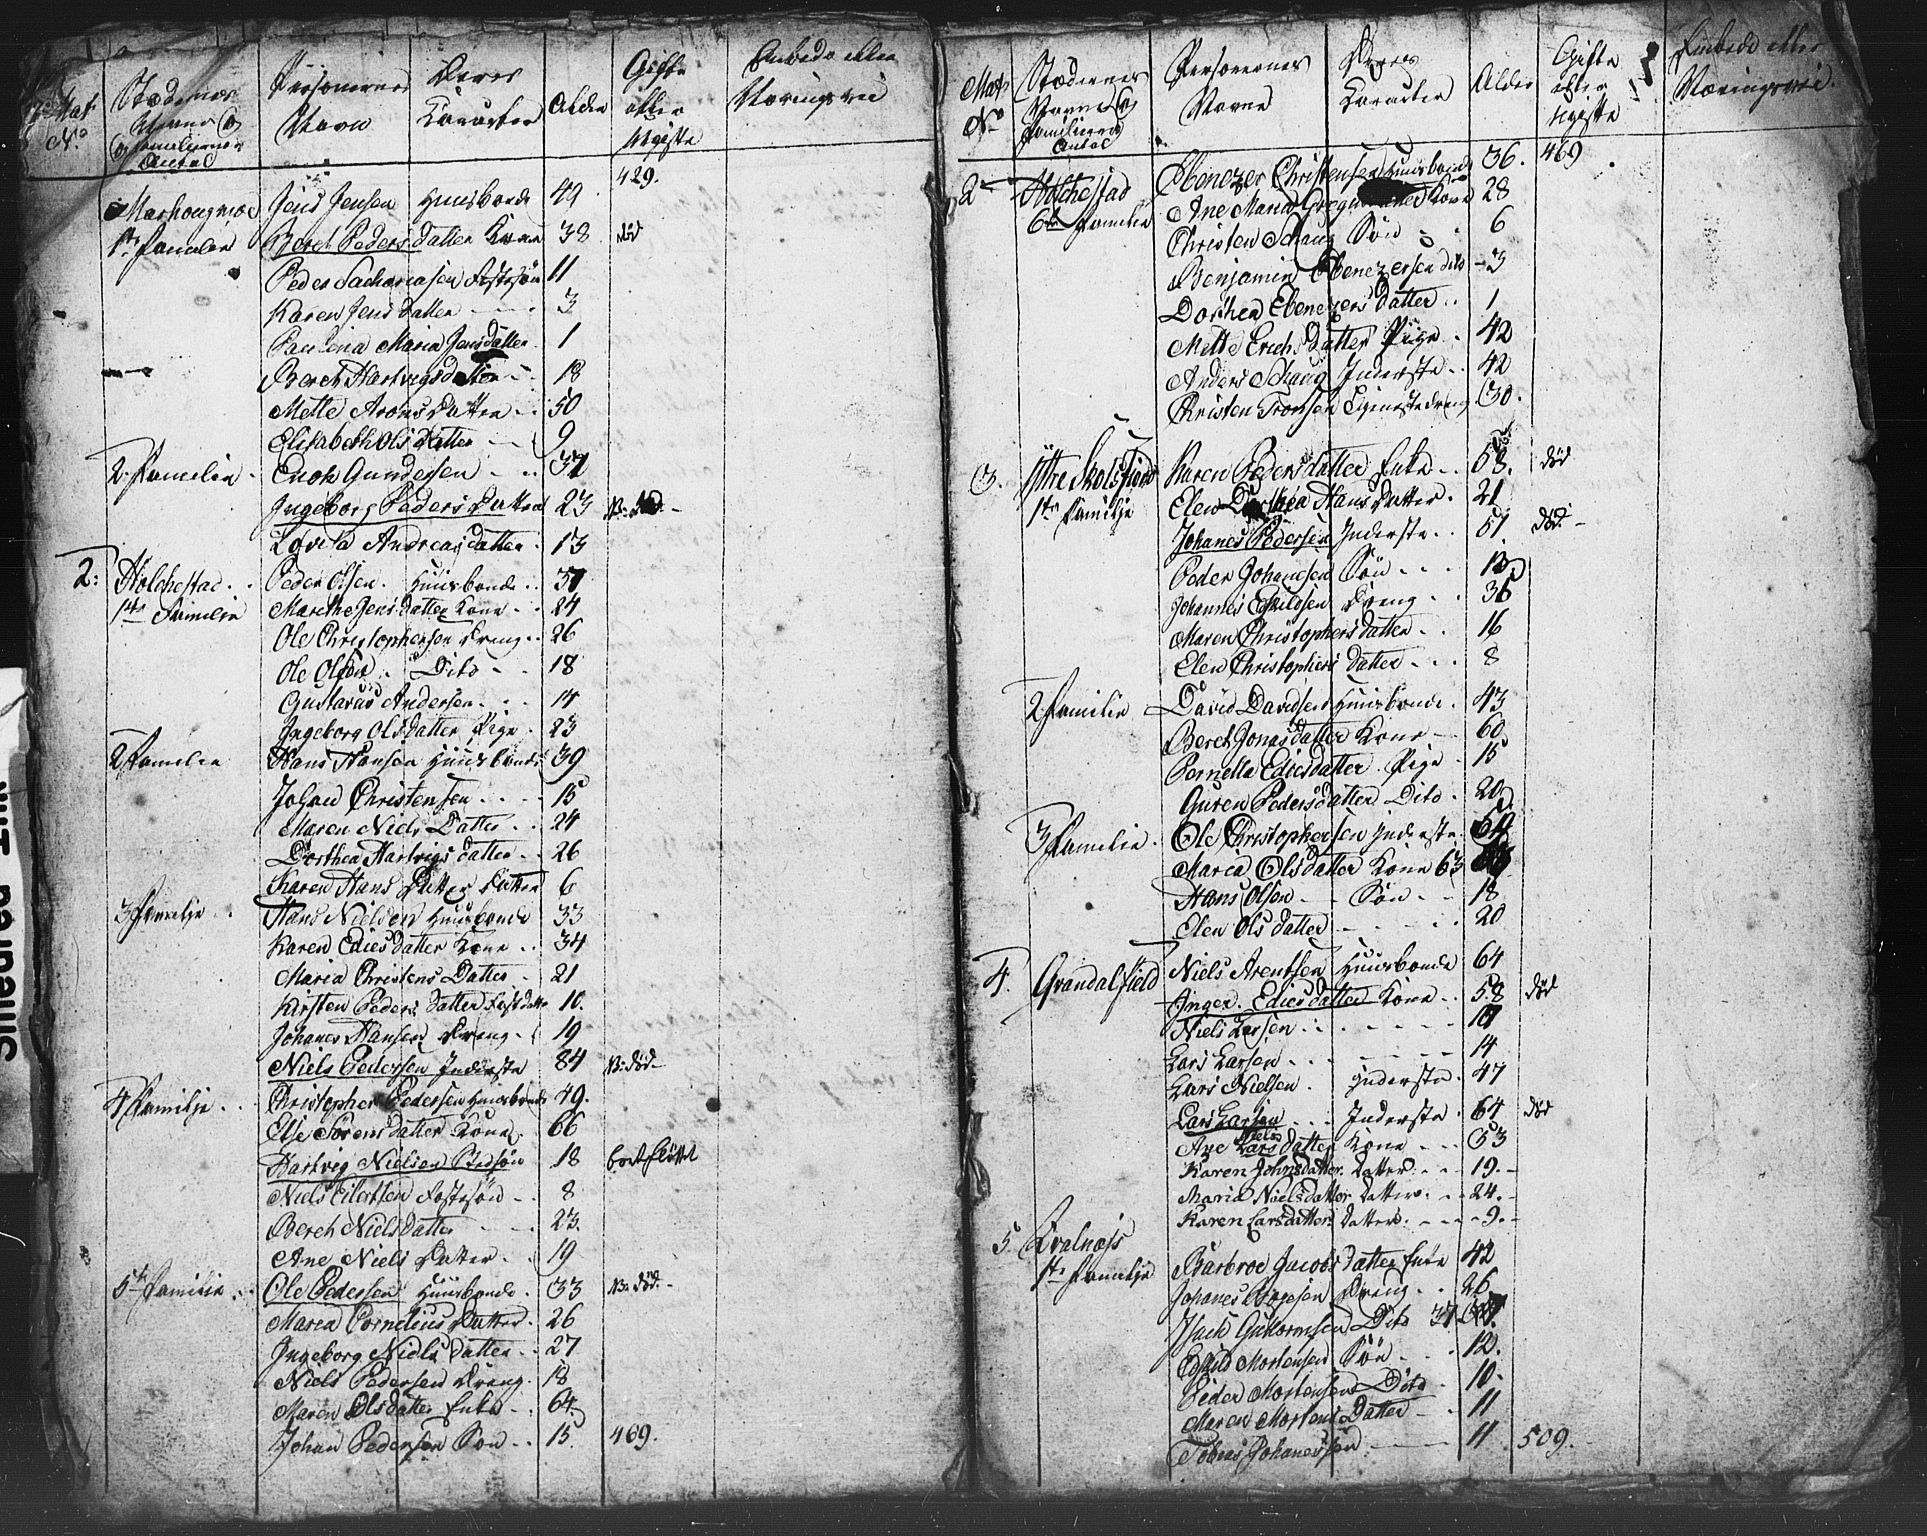 Mat: N:o | Stædernes Navne og Familiernes Antal | Personernes Navn | Deres Karacter | Alder | Gifte eller Ugifte | Embede eller Næringsvei
429.
Jens Jensen Huusbonde 49
1te Familie Berch Peders Datter Kone 38 død
Peder Sachariasen Fostersøn 11
Karen Jens Datter 3
Paulina Maria Jensdatter 1
Berch Hartvigsdatter 18
Mette Arons Datter 50
Elisabeth Ols Datter 9
2 Familie Enok Gundersen 37
Ingeborg Peders Datter 23 død
Lovisa Andreasdatter 13
2: Holchestad Peder Olsen Huusbonde 37
1te Familie Marthe Jens datter Kone 24
Ole Christophersen Dreng 26
Ole Olsen Dito 18
Gustavus Andersen 14
Ingeborg Olsdatter Pige 23
2 Familie Hans Hansen Huusbonde 39
Johan Christensen 15
Maren Niels Datter 24
Dorthea Hartvigs datter 26
Karen Hans Datter Datter 6
3 Familje Hans Nielsen Huusbonde 33
Karen Edies datter Kone 34
Maria Christens Datter 21
Kirsten Peders datter Fostdatter 10.
Johanes Hansen Dreng 19
Niels Pedersen Inderste 84 død
4 Familje Christopher Pedersen Huusbonde 49.
Else Sørens datter Kone 66
Hartvig Nielsen Stedsøn 18 bortfløttet
Niels Eilertsen Fostersøn 8
Berch Niels datter 23.
Ane Niels Datter 19
5te Familie Ole Pedersen Huusbonde 33 død
Maren Cornelius Datter 26
Ingeborg Niels datter 27
Niels Pedersen Dreng 18
Maren Olsdatter Enke 64
Johan Pedersen Søn 15. 469.
Mat: N:o | Stædernes Navne og Familiernes Antal | Personernes Navne | Deres Karacter | Alder | Gifte eller Ugifte | Embede eller Næringsvei.
2 Holchestad Ebenezer Christensen Huusbonde 36. 469
6te Familie Ane Maria Kone 28
Christen Schaug Søn 6
Benjamin Ebenezersen dito 3
Dorthea Ebenezers datter 1
Mette Erichs datter Pige 42
Anders Schaug Inderste 42
Christen Tronsen 30.
3. Ytre Skolsfiord Karen Peders datter Enke 63. død
1te Familje Elen Dorthea Hans Datter 21
Johanes Pedersen Inderste 51. død
Peder Johanesen Søn 12
Johannes Eskildsen Dreng 36
Maren Christophers datter 16
Elen Christophers datter 8
2 Familie David Davidsen Huusbonde 43
Berch Jonas datter Kone 60
Pernelle Edies datter Pige 15
Guren Peders datter Dito 20
3 Familie Ole Christophersen Inderste 64
Maria Olsdatter Kone 63
Hans Olsen Søn 18
Elen Ols datter 20
4. Grandalfield Niels Arentsen Huusbonde 64
Inger Edies datter Kone 58 død
Niels Larsen
Lars Larsen 14
Lars Nielsen Inderste 47
Lars Larsen Inderste 64 død
Ane Niels datter Kone 53
Karen Johnsdatter Datter 19.
Maria Nielsdatter Datter 24.
Karen Larsdatter Datter 9.
5 Qvalnæs
1te Familje Barbroe Jacobs datter Enke 42
Johanes Dreng 26
Isach Guttormsen Dito 37
Eskild Mortensen Søn 12.
Peder Mortensen Dito 10.
Maren Mortens Datter 11
Tobias Johanessen 11 509.